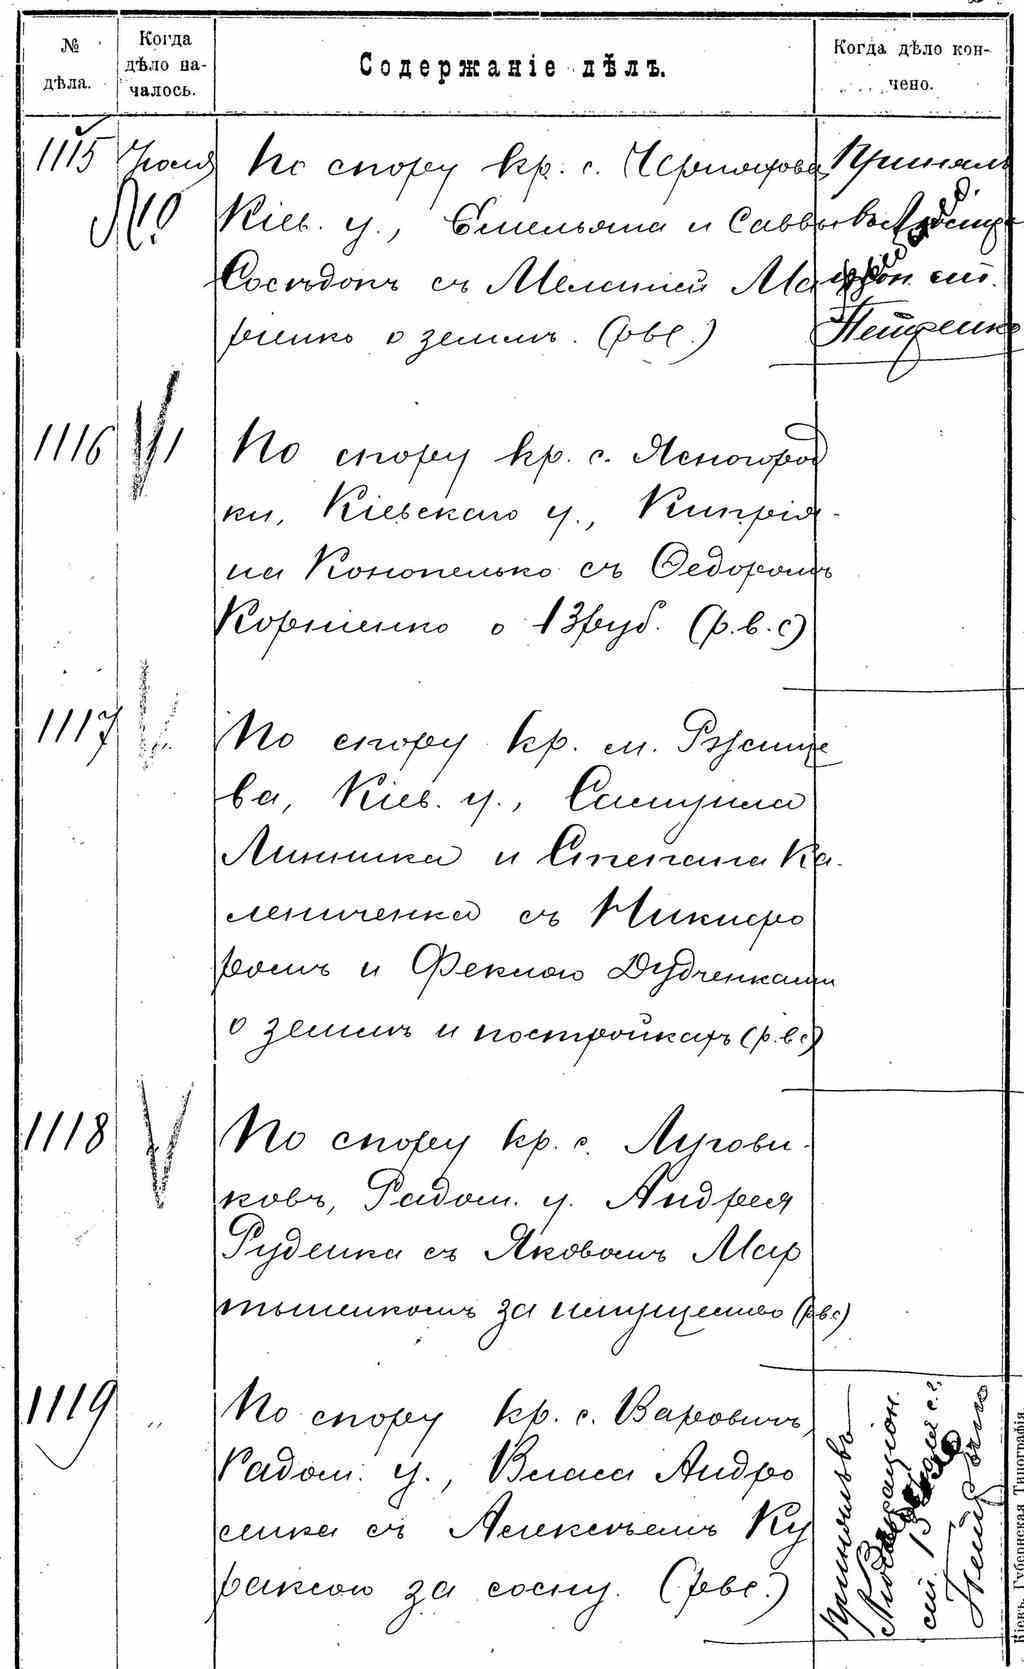 № дѣла.
Когда дѣло началось.
Содержаніе дѣлъ.
Когда дѣло кончено.
1115 Іюля По спору кр. с. Черняхова,
Кіев. у., Емельяна и Саввы
Сосѣдокъ съ Меланіей Ма
ріенко о землѣ. (рвс.)
Принялъ
Петренко
1116 11 По спору кр. с. Ясногород
ки, Кіевскаго у., Кипрія-
на Конопелько съ Ѳедоромъ
Корніенко о 13 руб. (р.в.с)
1117 По спору кр. м. Ржище
ва, Кіев. у., Самуила
Линника и Степана Ка-
лениченка съ Никифо
ромъ и Феклою Дудченками
о землѣ и постройкахъ (р.вс)
1118 По спору кр. с. Лугови-
ковъ, Радом. у. Андрея
Руденка съ Яковомъ Мар
тыненкомъ за имущество (рвс)
1119 „ По спору кр. с. Варовичъ,
Радом. у., Власа Андро
сенка съ Алексѣемъ Ку
раксою за сосну. (рвс.)
Кіевъ, Губернская Типографія.